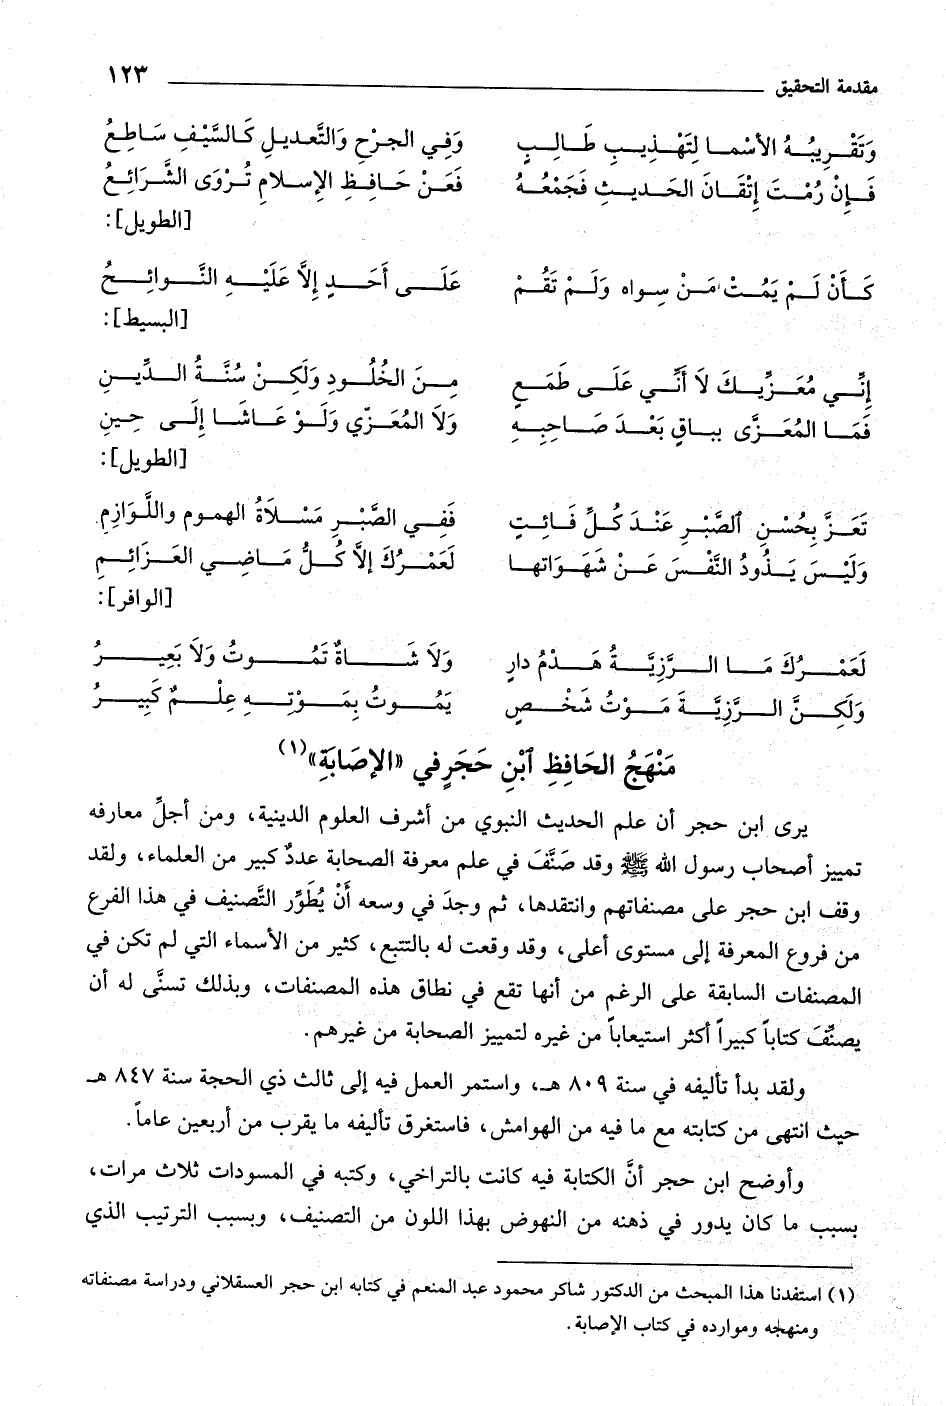 مقدمة التحقيق ١٢٣
وَتَقْرِيبُهُ الأَسْمَا لِتَهْذِيبِ طَالِبٍ وَفِي الجَرْحِ وَالتَّعديلِ كَالسَّيْفِ سَاطِعُ
فَإِنْ رُمْتَ إِتْقَانَ الحَديثِ فَجَمْعُهُ فَعَنْ حَافِظِ الإِسلامِ تُرْوَى الشَّرَائِعُ
[الطويل]:
كَأَنْ لَمْ يَمُتْ مَنْ سِواه وَلَمْ تَقُمْ عَلَى أَحَدٍ إِلاَّ عَلَيْهِ النَّوائِحُ
[البسيط]:
إِنِّي مُعَزِّيكَ لَا أَنِّي عَلَى طَمَعٍ مِنَ الخُلُودِ وَلَكِنْ سُنَّةُ الدِّينِ
فَمَا المُعَزَّى بباقٍ بَعْدَ صَاحِبِهِ وَلَا المُعَزّي وَلَوْ عَاشَا إِلَى حِينِ
[الطويل]:
تَعَزَّ بِحُسْنِ ٱلصَّبْرِ عَنْدَ كُلِّ فَائِتٍ فَفِي الصَّبْرِ مَسْلاَةُ الهموم واللَّوَازِمِ
وَلَيْسَ يَذُودُ النَّفْسَ عَنْ شَهَوَاتها لَعَمْرُكَ إلاَّ كُلُّ مَاضِي العَزَائِمِ
[الوافر]:
لَعَمْرُكَ مَا الرَّزِيَّةُ هَدْمُ دارٍ وَلَا شَاةٌ تَمُوتُ وَلَا بَعِيرُ
وَلَكِنَّ الرَّزِيَّةَ مَوْتُ شَخْصٍ يَمُوتُ بِمَوْتِهِ عِلْمٌ كَبِيرُ
مَنْهَجُ الحَافِظِ ٱبْنِ حَجَرٍ في «الإصَابَةِ»(١)
يرى ابن حجر أن علم الحديث النبوي من أشرف العلوم الدينية، ومن أجلِّ معارفه
تمييز أصحاب رسول الله ﷺ وقد صَنَّفَ في علم معرفة الصحابة عددٌ كبير من العلماء، ولقد
وقف ابن حجر على مصنفاتهم وانتقدها، ثم وجدَ في وسعه أَنْ يُطَوِّر التَّصنيف في هذا الفرع
من فروع المعرفة إلى مستوى أعلى، وقد وقعت له بالتتبع، كثير من الأسماء التي لم تكن في
المصنفات السابقة على الرغم من أنها تقع في نطاق هذه المصنفات، وبذلك تسنَّى له أن
يصنِّفَ كتاباً كبيراً أكثر استيعاباً من غيره لتمييز الصحابة من غيرهم.
ولقد بدأ تأليفه في سنة ٨٠٩ هـ، واستمر العمل فيه إلى ثالث ذي الحجة سنة ٨٤٧ هـ
حيث انتهى من كتابته مع ما فيه من الهوامش، فاستغرق تأليفه ما يقرب من أربعين عاماً.
وأوضح ابن حجر أنَّ الكتابة فيه كانت بالتراخي، وكتبه في المسودات ثلاث مرات،
بسبب ما كان يدور في ذهنه من النهوض بهذا اللون من التصنيف، وبسبب الترتيب الذي
(١) استفدنا هذا المبحث من الدكتور شاكر محمود عبد المنعم في كتابه ابن حجر العسقلاني ودراسة مصنفاته
ومنهجه وموارده في كتاب الإصابة.